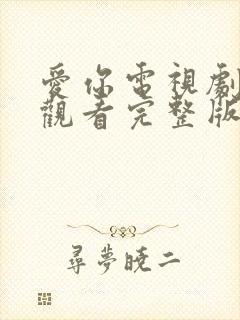 愛你電視劇
觀看完整版
尋夢曉二